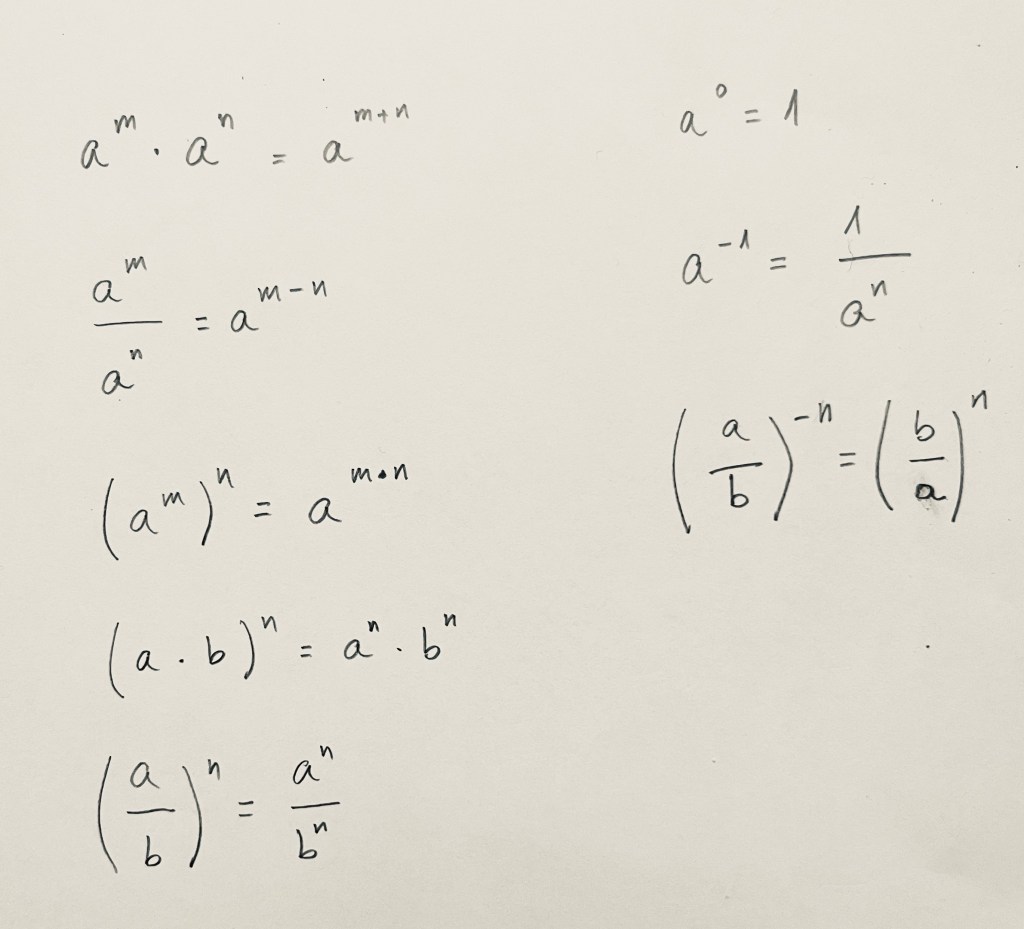 aᵐ · aⁿ = aᵐ⁺ⁿ
aᵐ / aⁿ = aᵐ⁻ⁿ
(aᵐ)ⁿ = aᵐ˙ⁿ
(a · b)ⁿ = aⁿ · bⁿ
(a / b)ⁿ = aⁿ / bⁿ
a⁰ = 1
a⁻¹ = 1 / aⁿ
(a / b)⁻ⁿ = (b / a)ⁿ